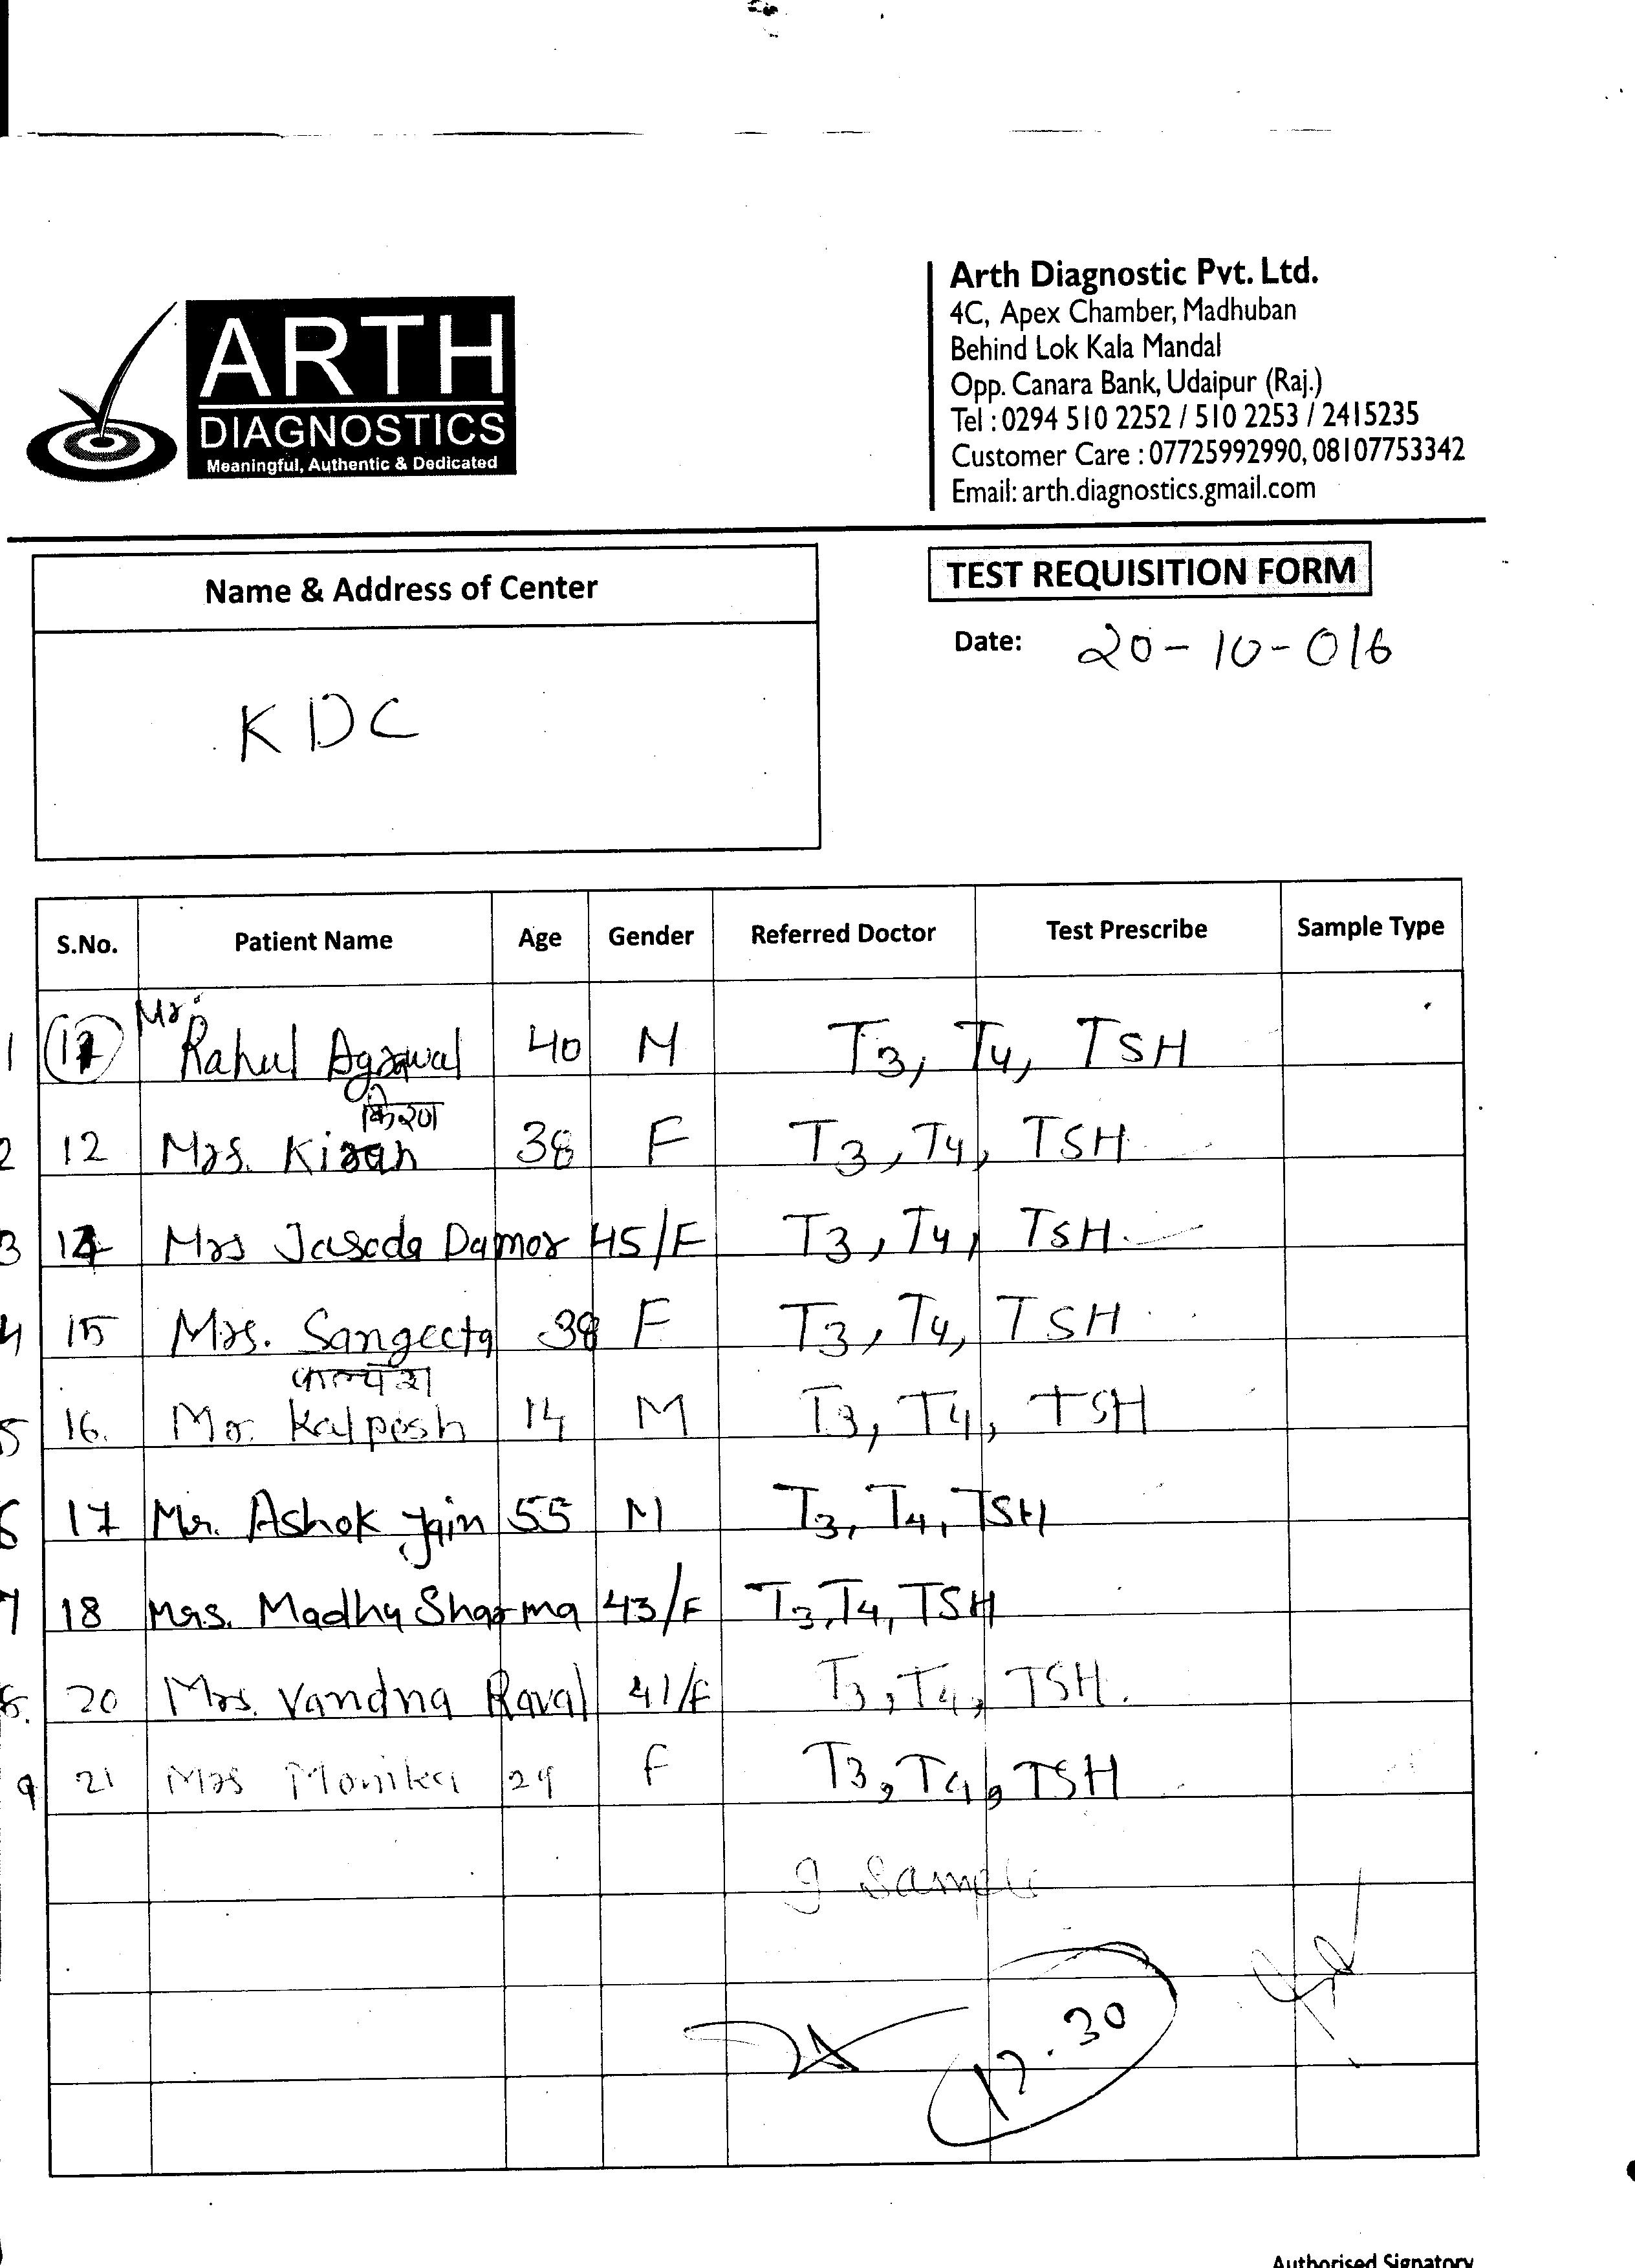 ARTH
DIAGNOSTICS
Meaningful, Authentic & Dedicated
Arth Diagnostic Pvt. Ltd.
4C, Apex Chamber, Madhuban
Behind Lok Kala Mandal
Opp. Canara Bank, Udaipur (Raj.)
Tel : 0294 510 2252 / 510 2253 / 2415235
Customer Care : 07725992990, 08107753342
Email: arth.diagnostics.gmail.com
Name & Address of Center
KDC
TEST REQUISITION FORM
Date: 20-10-016
S.No. Patient Name Age Gender Referred Doctor Test Prescribe Sample Type
1 Mr. Rahul Agrawal 40 M T3, T4, TSH
किरण
2 12 Mrs. Kiran 38 F T3, T4, TSH
3 14 Mrs Jasoda Damor 45/F T3, T4, TSH.
4 15 Mrs. Sangeeta 38 F T3, T4, TSH
कल्पेश
5 16. Mr. Kalpesh 14 M T3, T4, TSH
6 17 Mr. Ashok Jain 55 M T3, T4, TSH
7 18 Mrs. Madhu Sharma 43/F T3, T4, TSH
8. 20 Mrs. Vandna Raval 41/F T3, T4, TSH.
9 21 Mrs Monika 29 F T3, T4, TSH
9 Sample
17.30
Authorised Signatory